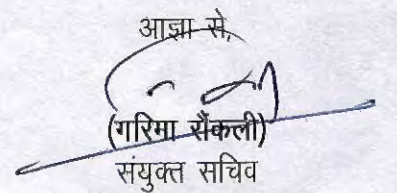 आज्ञा से,
(गरिमा रौंकली)
संयुक्त सचिव